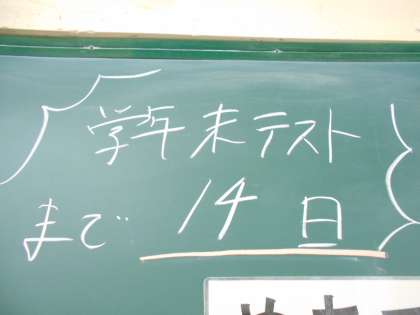 学年末テスト
まで 14日